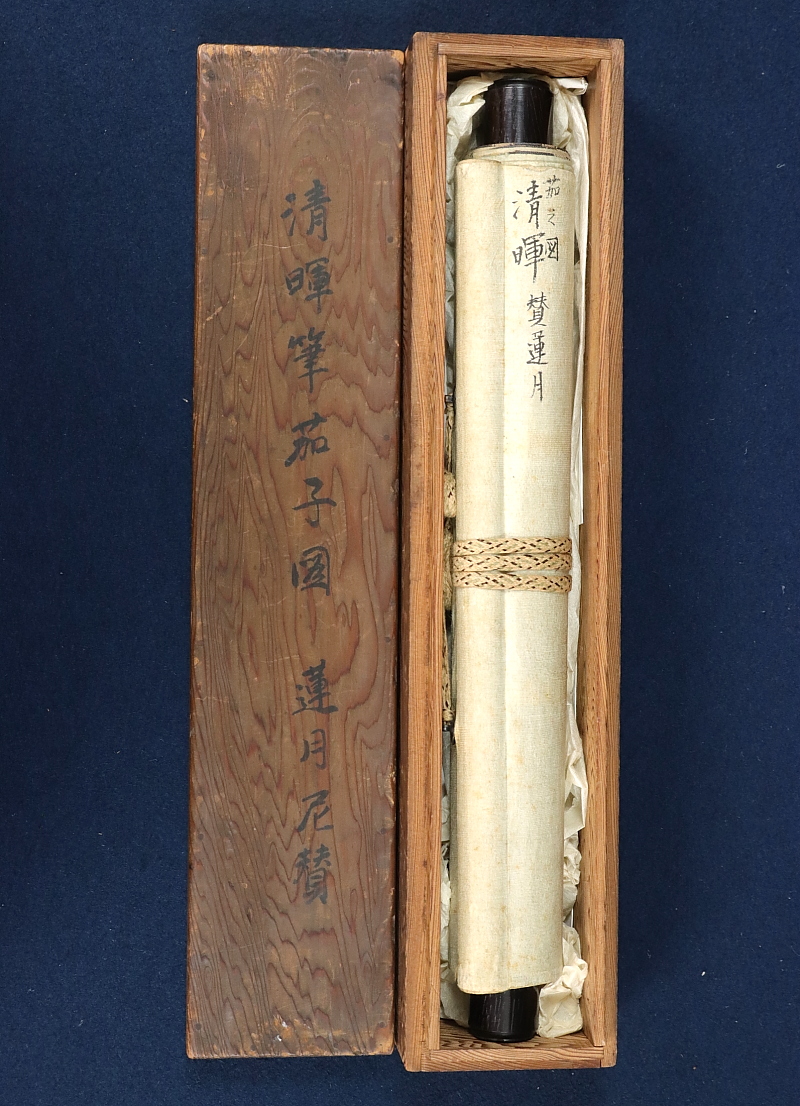 清暉筆茄子図 蓮月尼賛
茄之図
清暉 賛蓮月